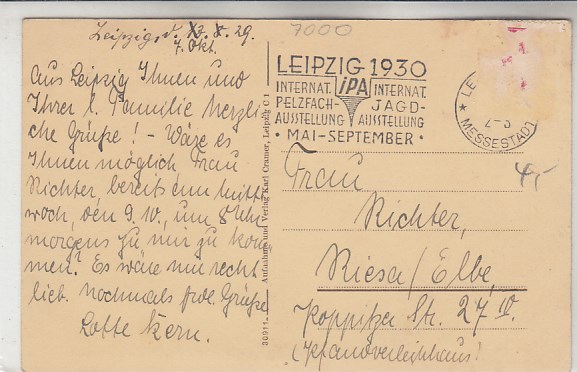 Leipzig, d. 8. 29.
7. Okt.
Aus Leipzig Ihnen und
Ihrer l. Familie herzli-
che Grüße! – Wäre es
Ihnen möglich Frau
Richter, bereits am Mitt-
woch, den 9.10., um 8 Uhr
morgens zu mir zu kom-
men? Es wäre mir recht
lieb. Nochmals frdl. Grüße
Lotte Kern.
30911 Aufnahme und Verlag Karl Cramer, Leipzig C 1
7000
LEIPZIG 1930
INTERNAT. iPA INTERNAT.
PELZFACH- JAGD-
AUSSTELLUNG AUSSTELLUNG
• MAI-SEPTEMBER •
MESSESTADT
Frau
Richter,
Riesa/Elbe,
Poppitzer Str. 27 IV.
(Pfandleihhaus!
4,-